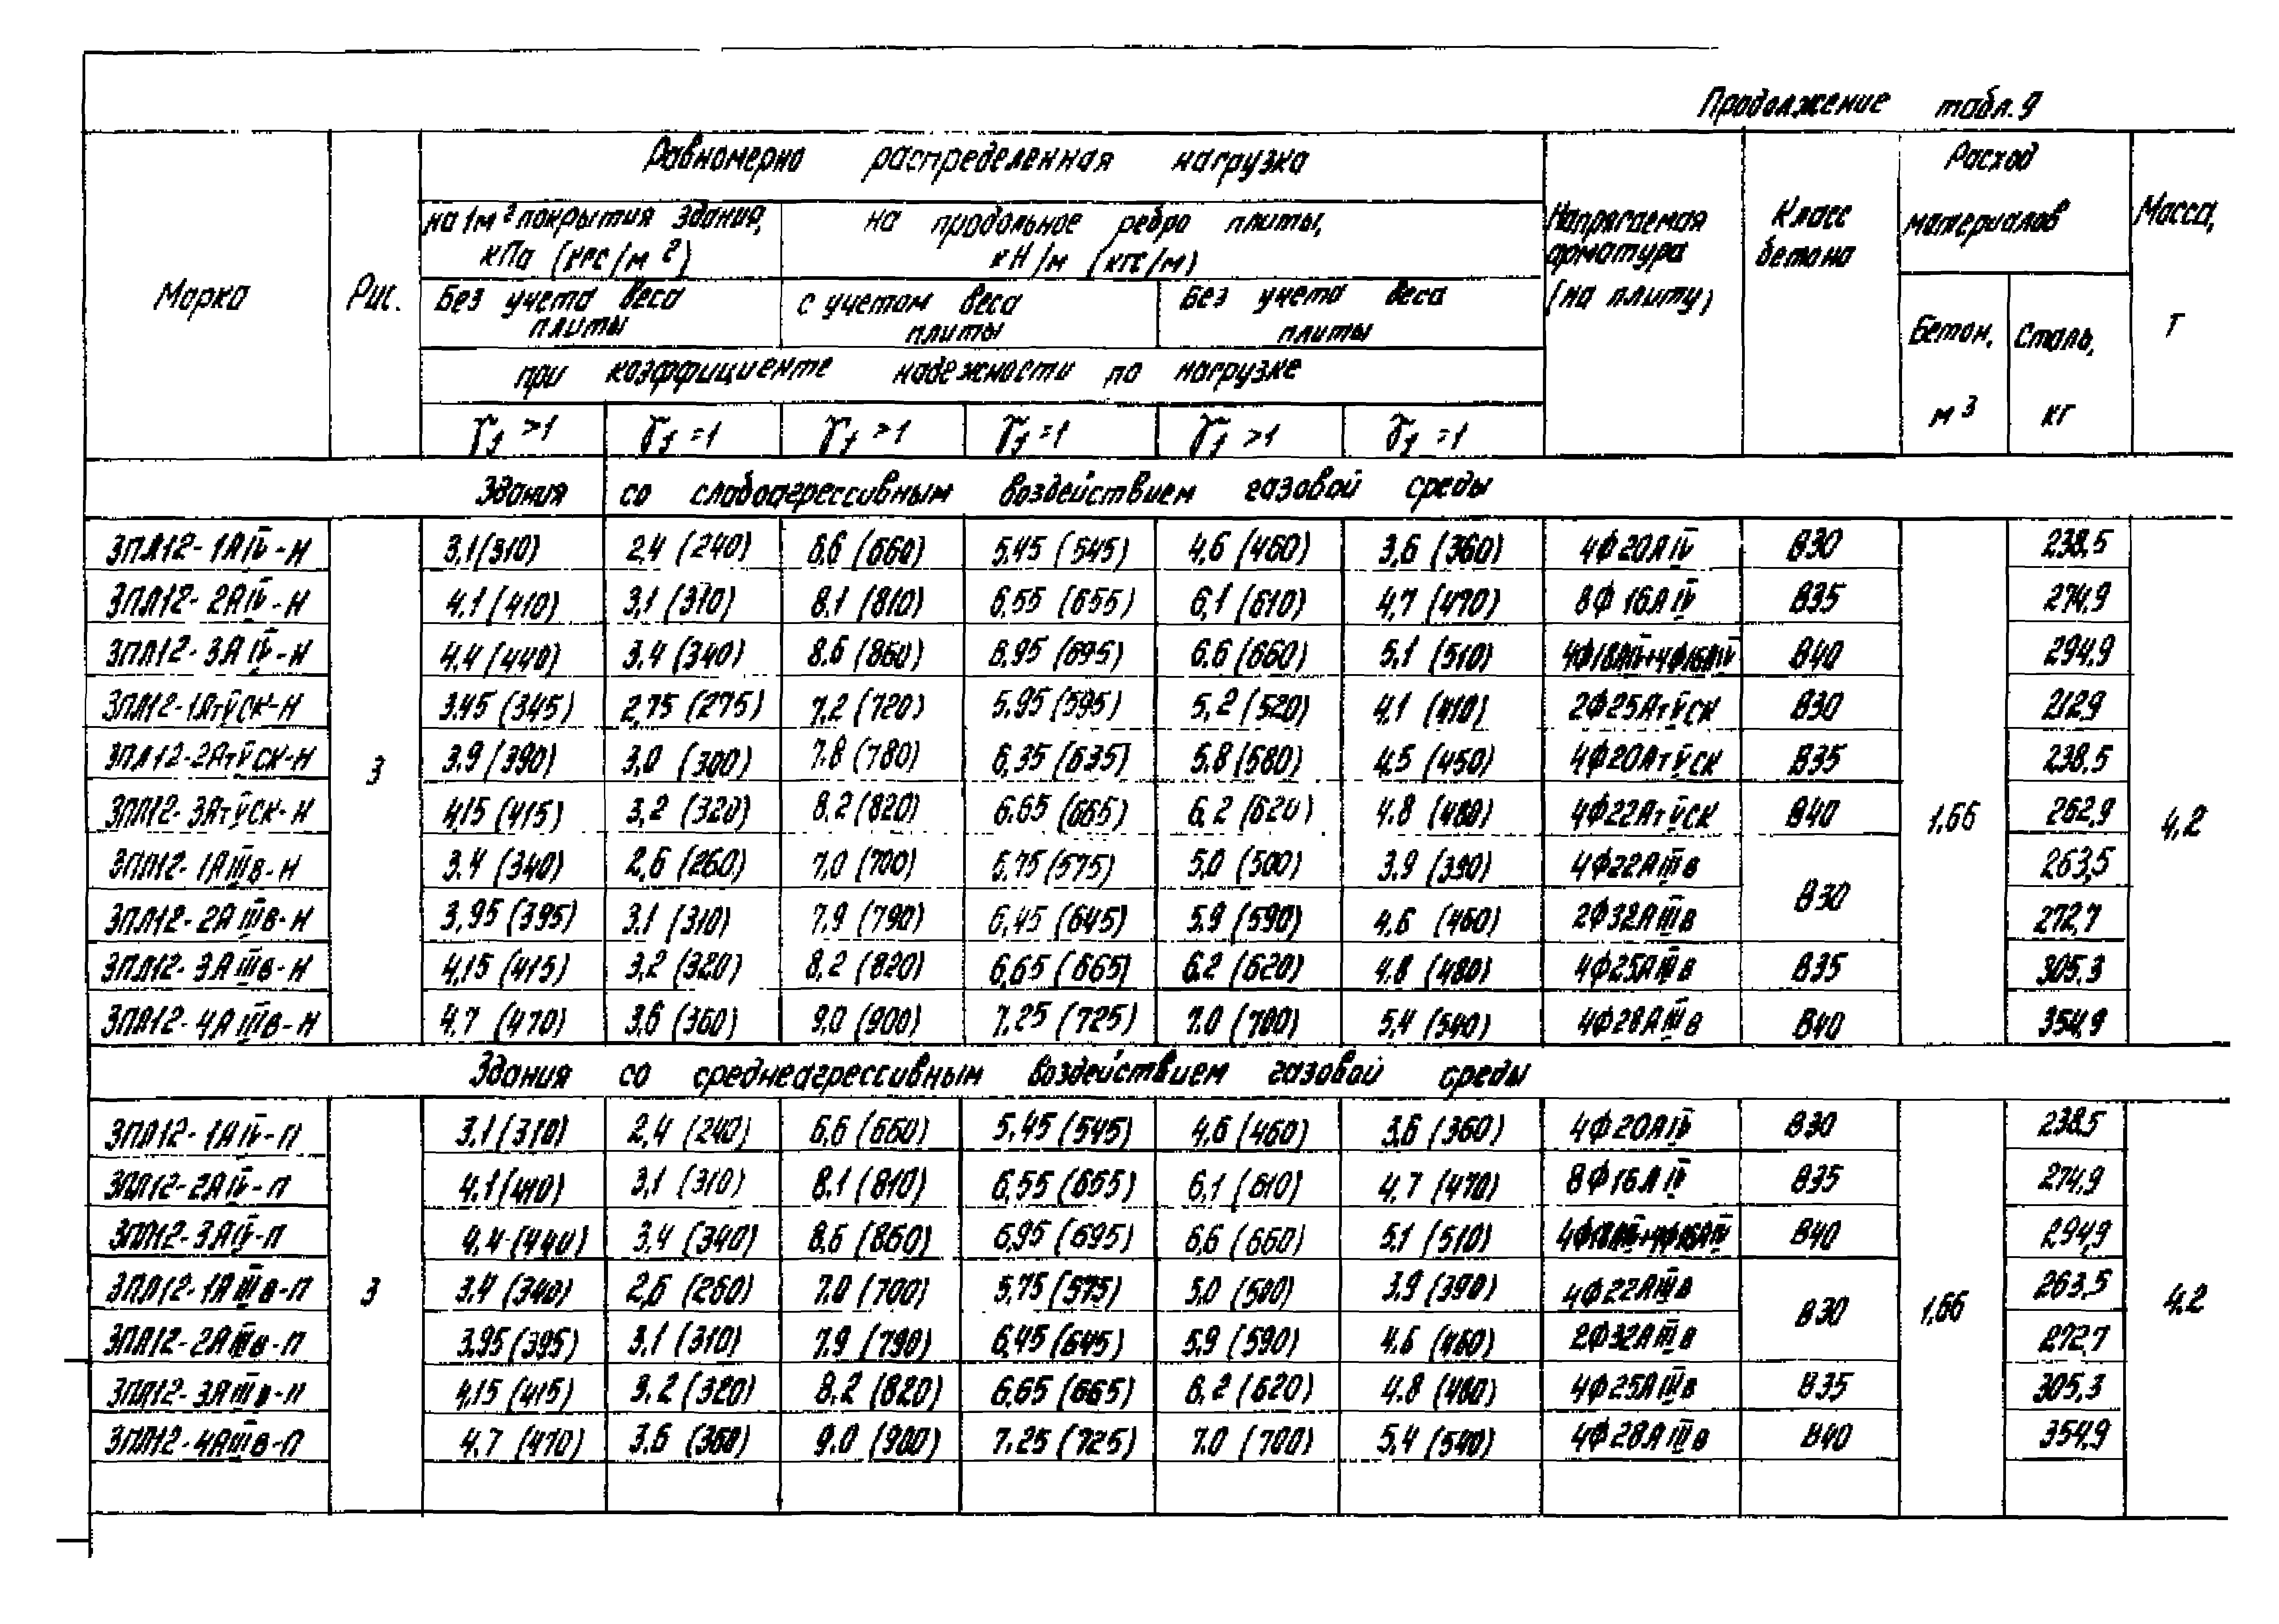 Продолжение табл. 9
Марка
Рис.
Равномерно распределенная нагрузка
на 1м² покрытия здания, кПа (кгс/м²)
на продольное ребро плиты, кН/м (кгс/м)
Без учета веса плиты
с учетом веса плиты
Без учета веса плиты
при коэффициенте надежности по нагрузке
γf >1 γf =1 γf >1 γf =1 γf >1 γf =1
Напрягаемая арматура (на плиту)
Класс бетона
Расход материалов
Бетон, м³
Сталь, кг
Масса, т
Здания со слабоагрессивным воздействием газовой среды
3ПЛ12-1АIV-Н 3,1(310) 2,4 (240) 6,6 (660) 5,45 (545) 4,6 (460) 3,6 (360) 4ф20АIV В30 238,5
3ПЛ12-2АIV-Н 4,1 (410) 3,1 (310) 8,1 (810) 6,55 (655) 6,1 (610) 4,7 (470) 8ф16АIV В35 274,9
3ПЛ12-3АIV-Н 4,4 (440) 3,4 (340) 8,6 (860) 6,95 (695) 6,6 (660) 5,1 (510) 4ф18АIV+4ф16АIV В40 294,9
3ПЛ12-1АтVСК-Н 3,45 (345) 2,75 (275) 7,2 (720) 5,95 (595) 5,2 (520) 4,1 (410) 2ф25АтVСК В30 212,9
3ПЛ12-2АтVСК-Н 3,9 (390) 3,0 (300) 7,8 (780) 6,35 (635) 5,8 (580) 4,5 (450) 4ф20АтVСК В35 238,5
3
3ПЛ12-3АтVСК-Н 4,15 (415) 3,2 (320) 8,2 (820) 6,65 (665) 6,2 (620) 4,8 (480) 4ф22АтVСК В40 1,66 262,9 4,2
3ПЛ12-1АIIIв-Н 3,4 (340) 2,6 (260) 7,0 (700) 5,75 (575) 5,0 (500) 3,9 (390) 4ф22АIIIв 263,5
В30
3ПЛ12-2АIIIв-Н 3,95 (395) 3,1 (310) 7,9 (790) 6,45 (645) 5,9 (590) 4,6 (460) 2ф32АIIIв 272,7
3ПЛ12-3АIIIв-Н 4,15 (415) 3,2 (320) 8,2 (820) 6,65 (665) 6,2 (620) 4,8 (480) 4ф25АIIIв В35 305,3
3ПЛ12-4АIIIв-Н 4,7 (470) 3,6 (360) 9,0 (900) 7,25 (725) 7,0 (700) 5,4 (540) 4ф28АIIIв В40 354,9
Здания со среднеагрессивным воздействием газовой среды
3ПЛ12-1АIV-П 3,1 (310) 2,4 (240) 6,6 (660) 5,45 (545) 4,6 (460) 3,6 (360) 4ф20АIV В30 238,5
3ПЛ12-2АIV-П 4,1 (410) 3,1 (310) 8,1 (810) 6,55 (655) 6,1 (610) 4,7 (470) 8ф16АIV В35 274,9
3ПЛ12-3АIV-П 4,4 (440) 3,4 (340) 8,6 (860) 6,95 (695) 6,6 (660) 5,1 (510) 4ф18АIV+4ф16АIV В40 294,9
3ПЛ12-1АIIIв-П 3 3,4 (340) 2,6 (260) 7,0 (700) 5,75 (575) 5,0 (500) 3,9 (390) 4ф22АIIIв 263,5
В30 1,66 4,2
3ПЛ12-2АIIIв-П 3,95 (395) 3,1 (310) 7,9 (790) 6,45 (645) 5,9 (590) 4,6 (460) 2ф32АIIIв 272,7
3ПЛ12-3АIIIв-П 4,15 (415) 3,2 (320) 8,2 (820) 6,65 (665) 6,2 (620) 4,8 (480) 4ф25АIIIв В35 305,3
3ПЛ12-4АIIIв-П 4,7 (470) 3,6 (360) 9,0 (900) 7,25 (725) 7,0 (700) 5,4 (540) 4ф28АIIIв В40 354,9